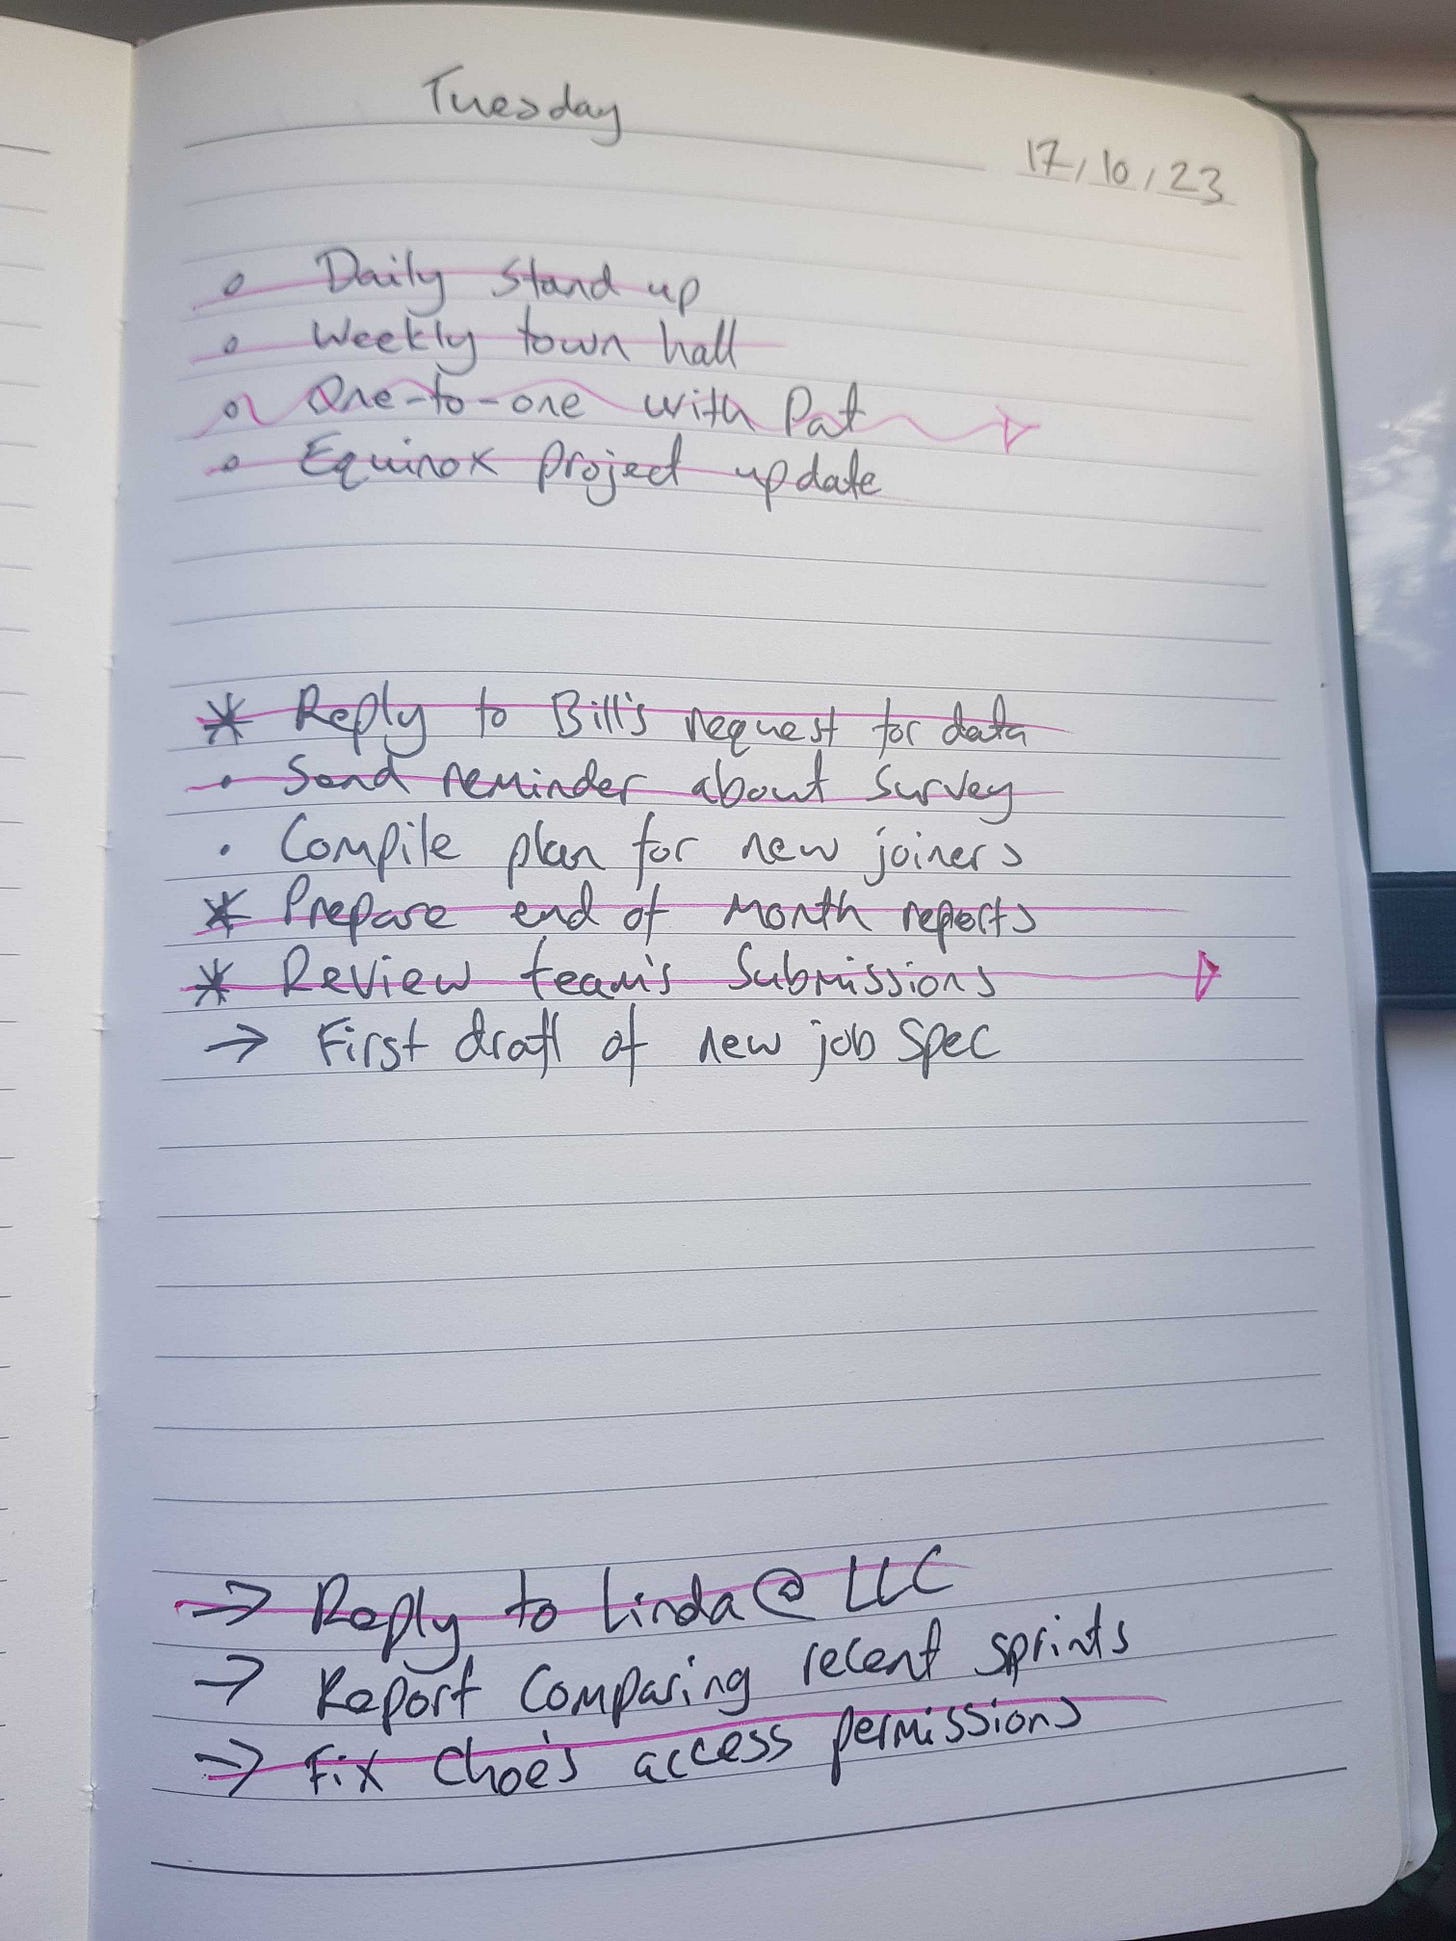 Tuesday
17/10/23
o Daily stand up
o Weekly town hall
o One-to-one with Pat
o Equinox project update
* Reply to Bill's request for data
• Send reminder about survey
• Compile plan for new joiners
* Prepare end of month reports
* Review team's submissions
→ First draft of new job spec
→ Reply to Linda @ LLC
→ Report comparing recent sprints
→ Fix Choe's access permissions